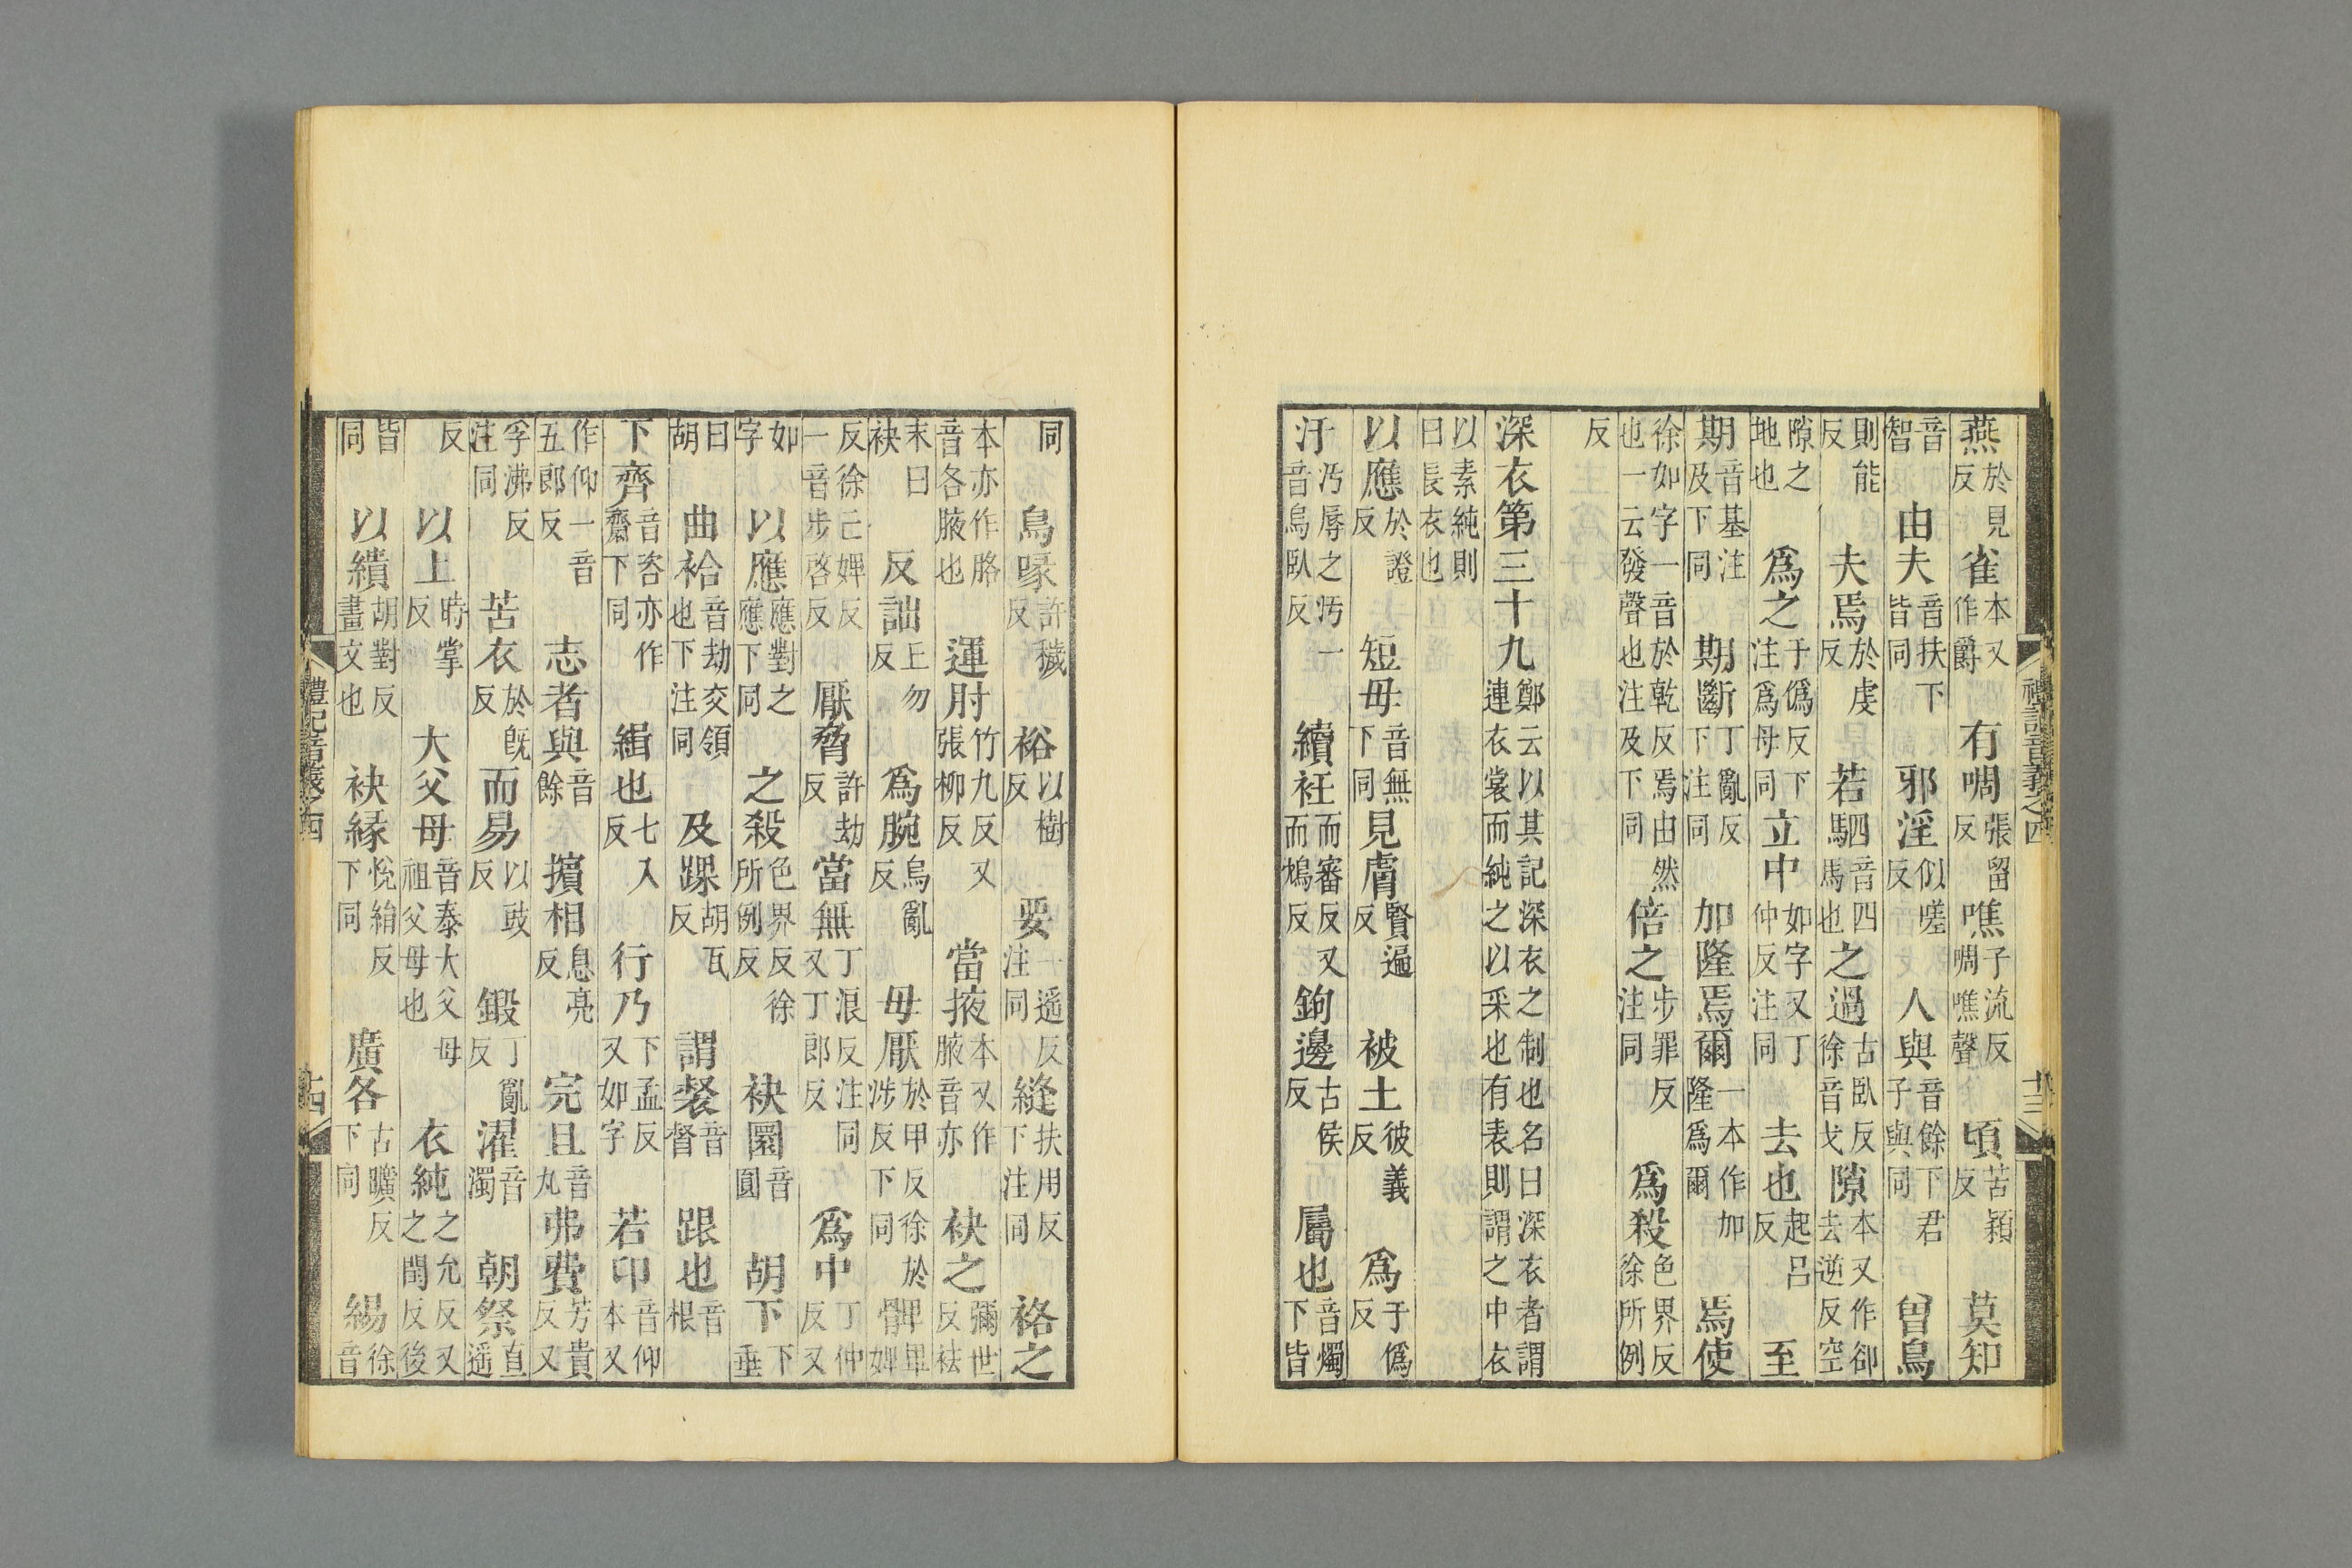 禮記音義之四 十三
燕於見反雀本又作爵有啁張留反噍子流反啁噍聲頃苦穎反莫知
音智由夫音扶下皆同邪淫似嗟反人與音餘下君子與同曾鳥
則能反夫焉於虔反若駟音四馬也之過古臥反徐音戈隙本又作卻去逆反空
隙之地也爲之于僞反下注爲母同立中如字又丁仲反注同去也起呂反至
期音基注及下同期斷丁亂反下注同加隆焉爾一本作加隆爲爾焉使
徐如字一音於乾反焉由然也一云發聲也注及下同倍之步罪反注同爲殺色界反徐所例
反
深衣第三十九鄭云以其記深衣之制也名曰深衣者謂連衣裳而純之以采也有表則謂之中衣
以素純則曰長衣也
以應於證反短毋音無下同見膚賢遍反被土彼義反爲于僞反
汙汚辱之汚一音烏臥反續衽而審反又而鴆反鉤邊古侯反屬也音燭下皆
同鳥喙許穢反裕以樹反要一遙反注同縫扶用反下注同袼之
本亦作胳音各腋也運肘竹九反又張柳反當掖本又作腋音亦袂之彌世反袪
末曰袂反詘丘勿反爲腕烏亂反毋厭於甲反徐於涉反下同髀畢婢
反徐己婢反一音步啓反厭脅許劫反當無丁浪反注同又丁郎反爲中丁仲反又
如字以應應對之應下同之殺色界反徐所例反袂圜音圓胡下下垂
曰胡曲袷音劫交領也下注同及踝胡瓦反謂裻音督跟也音根
下齊音咨亦作齋下同緝也七入反行乃下孟反又如字若卬音仰本又
作仰一音五郎反志者與音餘擯相息亮反完且音丸弗費芳貴反又
孚沸反注同苦衣於旣反而易以豉反鍛丁亂反濯音濁朝祭直遙
反以上時掌反大父母音泰大父母祖父母也衣純之允反又之閏反後
皆同以繢胡對反畫文也袂緣悅絹反下同廣各古曠反下同緆徐音
禮記音義之四 十四